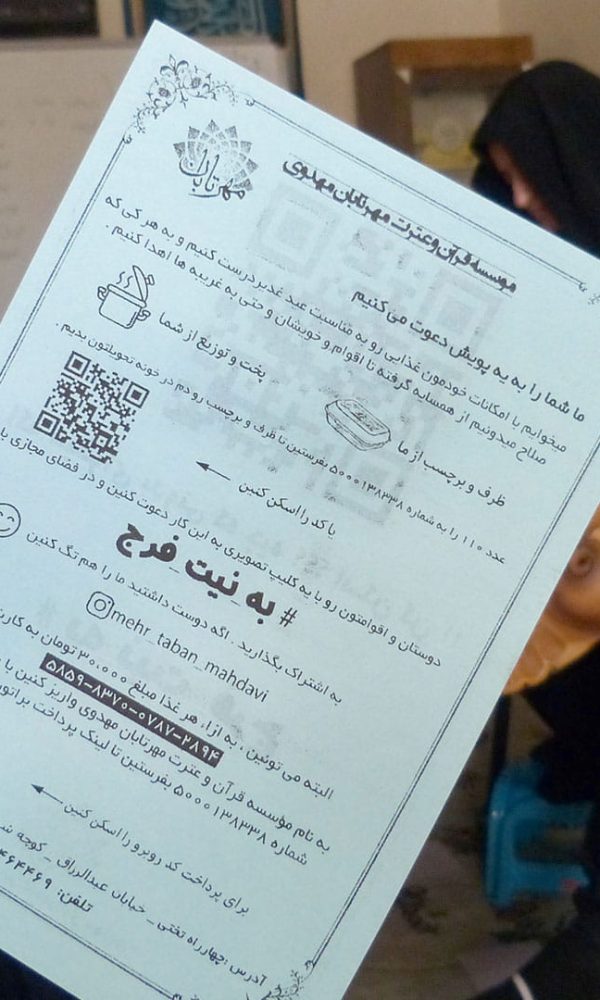 مهرتابان
موسسه قرآن و عترت مهرتابان مهدوی
ما شما را به یه پویش دعوت می کنیم
میخوایم با امکانات خودمون غذایی رو به مناسبت عید غدیر درست کنیم و به هر کی که
صلاح میدونیم از همسایه گرفته تا اقوام و خویشان و حتی به غریبه ها اهدا کنیم .
پخت و توزیع از شما
ظرف و برچسب از ما
عدد ۱۱۰ را به شماره ۵۰۰۰۱۳۸۳۳۸ بفرستین تا ظرف و برچسب رو دم در خونه تحویلتون بدیم .
یا کد را اسکن کنین
دوستان و اقوامتون رو با یه کلیپ تصویری به این کار دعوت کنین و در فضای مجازی با
# به_نیت_فرج
به اشتراک بگذارید . اگه دوست داشتید ما را هم تگ کنین
mehr_taban_mahdavi
البته می تونین ، به ازاء هر غذا مبلغ ۳۰.۰۰۰ تومان به کارت
۵۸۵۹-۸۳۷۰-۰۷۸۷-۲۸۹۴
به نام مؤسسه قرآن و عترت مهرتابان مهدوی واریز کنین یا
شماره ۵۰۰۰۱۳۸۳۳۸ بفرستین تا لینک پرداخت براتون
برای پرداخت کد روبرو را اسکن کنین
آدرس :چهارراه تختی _ خیابان عبدالرزاق _ کوچه
تلفن: ۴۶۴۴۶۹